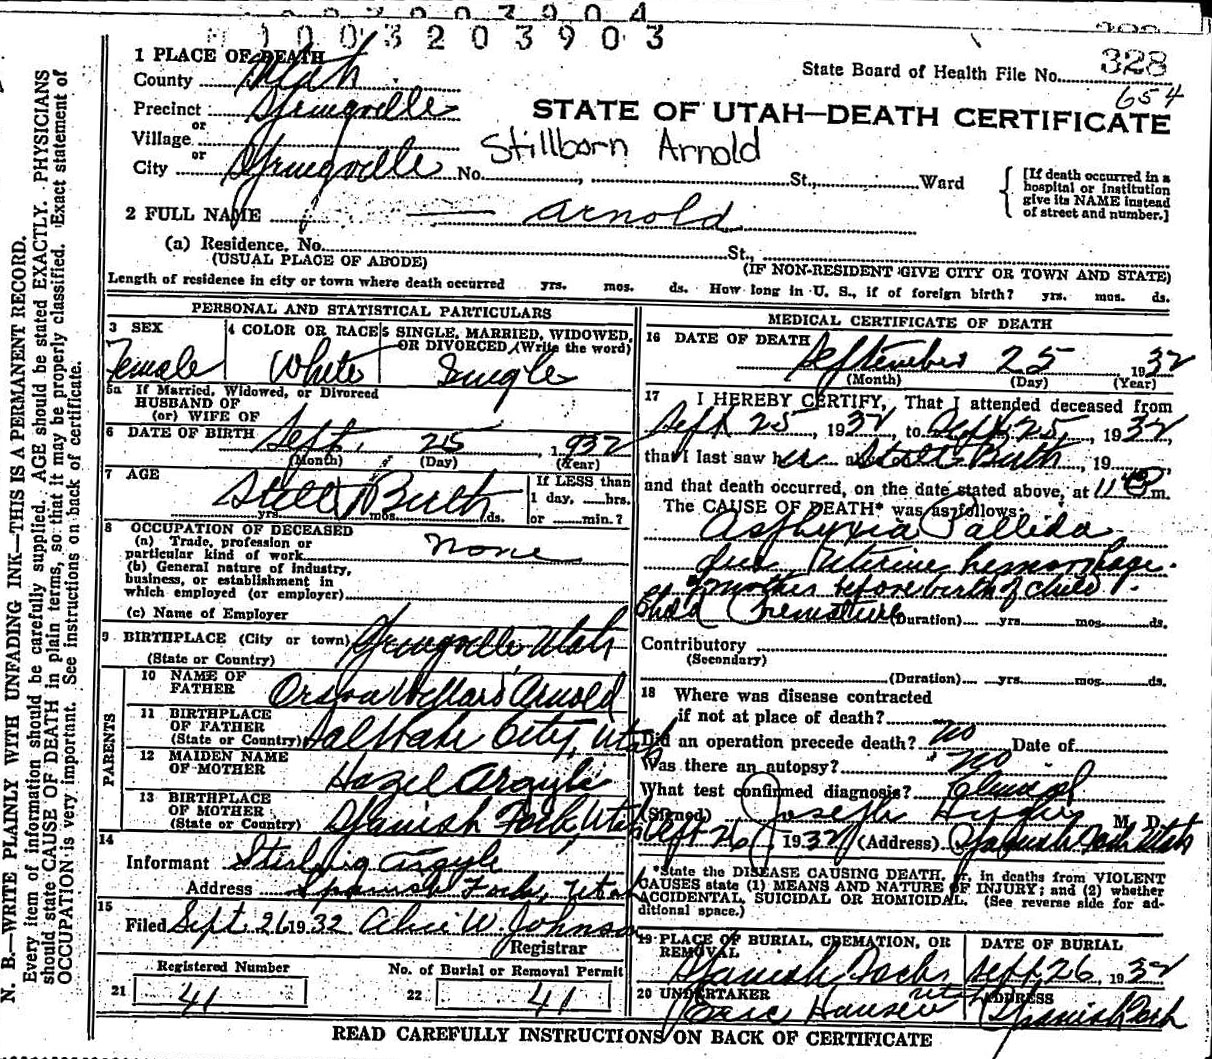 1003203904
1003203903
328
State Board of Health File No. 328
654
1 PLACE OF DEATH
County Utah
Precinct Springville
or
Village
or
City Springville No. St., Ward
STATE OF UTAH—DEATH CERTIFICATE
Stillborn Arnold
[If death occurred in a
hospital or institution
give its NAME instead
of street and number.]
2 FULL NAME — Arnold
(a) Residence, No. St.,
(USUAL PLACE OF ABODE) (IF NON-RESIDENT GIVE CITY OR TOWN AND STATE)
Length of residence in city or town where death occurred yrs. mos. ds. How long in U. S., if of foreign birth? yrs. mos. ds.
PERSONAL AND STATISTICAL PARTICULARS
3 SEX
Female
4 COLOR OR RACE
White
5 SINGLE, MARRIED, WIDOWED,
OR DIVORCED (Write the word)
Single
5a If Married, Widowed, or Divorced
HUSBAND OF
(or) WIFE OF
6 DATE OF BIRTH Sept. 25, 1932
(Month) (Day) (Year)
7 AGE
Still Birth
yrs. mos. ds.
If LESS than
1 day, hrs.
or min.?
8 OCCUPATION OF DECEASED
(a) Trade, profession or
particular kind of work none
(b) General nature of industry,
business, or establishment in
which employed (or employer)
(c) Name of Employer
9 BIRTHPLACE (City or town) Springville Utah
(State or Country)
PARENTS
10 NAME OF
FATHER Orson Willard Arnold
11 BIRTHPLACE
OF FATHER
(State or Country) Salt Lake City, Utah
12 MAIDEN NAME
OF MOTHER Hazel Argyle
13 BIRTHPLACE
OF MOTHER
(State or Country) Spanish Fork, Utah
14
Informant Sterling Argyle
Address Spanish Fork, Utah
15
Filed Sept. 26 1932 Alice W. Johnson
Registrar
Registered Number
21 41
No. of Burial or Removal Permit
22 41
MEDICAL CERTIFICATE OF DEATH
16 DATE OF DEATH
September 25, 1932
(Month) (Day) (Year)
17 I HEREBY CERTIFY, That I attended deceased from
Sept 25, 1932, to Sept 25, 1932,
that I last saw her Still Birth, 19
and that death occurred, on the date stated above, at m.
The CAUSE OF DEATH* was as follows:
Asphyxia Pallida
due Uterine hemorrhage.
mother before birth of child.
Child Premature (Duration) yrs. mos. ds.
Contributory
(Secondary)
(Duration) yrs. mos. ds.
18 Where was disease contracted
if not at place of death?
Did an operation precede death? No Date of
Was there an autopsy? No
What test confirmed diagnosis? Clinical
(Signed) Joseph Hughes M. D.
Sept 26, 1932 (Address) Spanish Fork Utah
*State the DISEASE CAUSING DEATH, or, in deaths from VIOLENT
CAUSES state (1) MEANS AND NATURE OF INJURY; and (2) whether
ACCIDENTAL, SUICIDAL OR HOMICIDAL. (See reverse side for ad-
ditional space.)
19 PLACE OF BURIAL, CREMATION, OR
REMOVAL
Spanish Fork Utah
DATE OF BURIAL
Sept 26, 1932
20 UNDERTAKER
Eric Hansen
ADDRESS
Spanish Fork
READ CAREFULLY INSTRUCTIONS ON BACK OF CERTIFICATE
N. B.—WRITE PLAINLY WITH UNFADING INK—THIS IS A PERMANENT RECORD.
Every item of information should be carefully supplied. AGE should be stated EXACTLY. PHYSICIANS
should state CAUSE OF DEATH in plain terms, so that it may be properly classified. Exact statement of
OCCUPATION is very important. See instructions on back of certificate.